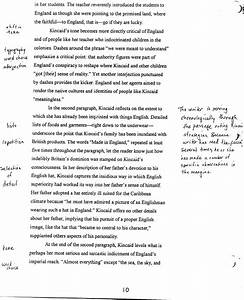 in her students. The teacher reverently introduced the students to
England as though she were pointing to the promised land, where
the faithful—to England, that is—go if they are lucky.
Kincaid's tone becomes more directly critical of England
and of people like her teacher who indoctrinated children in the
colonies. Dashes around the phrase "we were meant to understand"
emphasize a critical point: that authority figures were part of
England's conspiracy to reshape whomever England conquered
"got [their] sense of reality." Yet another interjection punctuated
by dashes provides the kicker: England and her agents aimed to
render the native cultures and identities of people like Kincaid
"meaningless."
In the second paragraph, Kincaid reflects on the extent to
which she has already been imprinted with things English. Detailed
lists of foods and garments—right down to the underwear—
reinforce the point that Kincaid's family has been inundated with
British products. The words "Made in England," repeated at least
five times throughout the paragraph, let the reader know just how
indelibly Britain's dominion was stamped on Kincaid's
consciousness. In her description of her father's devotion to his
English hat, Kincaid captures the insidious way in which English
superiority had worked its way into her father's sense of himself.
Her father adopted a hat entirely ill suited for the Caribbean
climate because "he must have admired a picture of an Englishman
wearing such a hat in England." Kincaid offers no other details
about her father, implying that his pursuit of a proper English
image, like the hat that "became so central to his character,"
supplanted others aspects of his personality.
At the end of the second paragraph, Kincaid levels what is
perhaps her most serious and sarcastic indictment of England's
imperial reach. "Almost everything" except "the sea, the sky, and
typography
word choice
interjection
lists
repetition
Selection
of
detail
tone
word
choice
The writer is moving
chronologically through
the passage noting
strategies because
writer has read the
Several times so she
has made a number of
specific observations in
the margins.
10